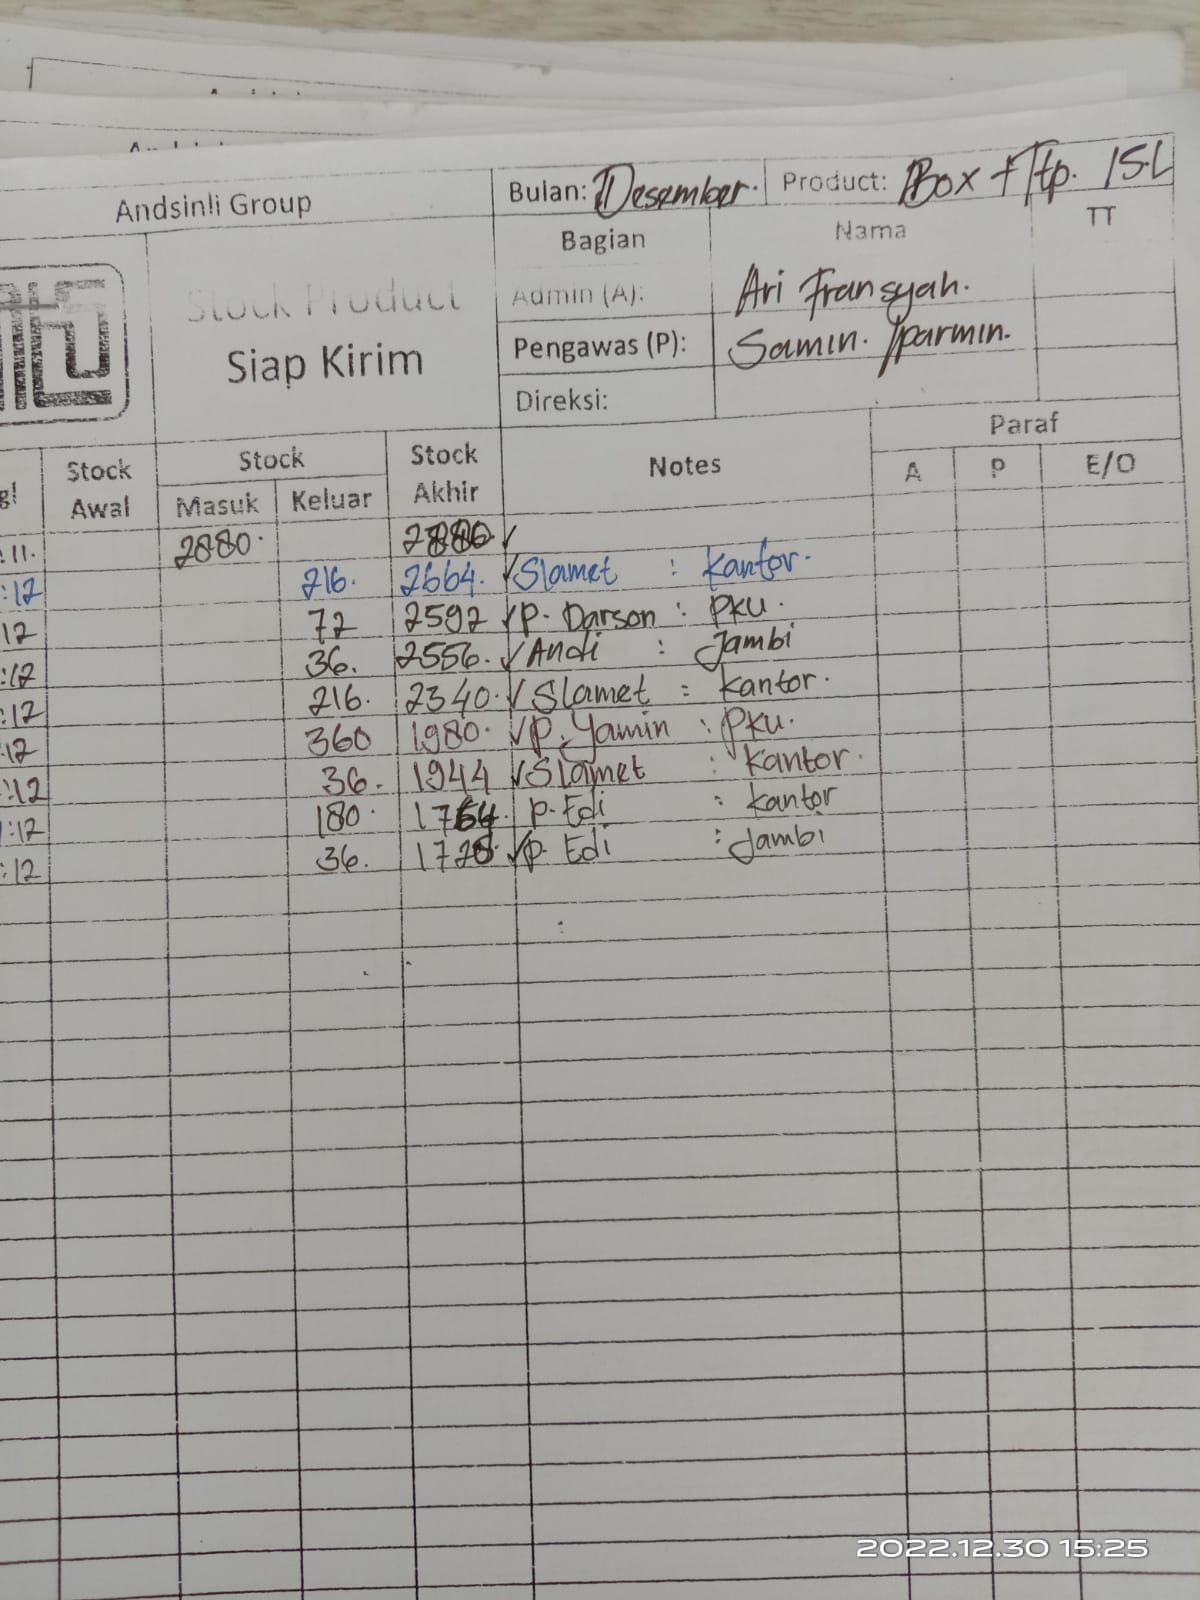 Andsinli Group
Bulan: Desember. Product: Box + Ttp. 15L
Bagian Nama TT
Stock Product
Siap Kirim
Admin (A): Ari Fransyah.
Pengawas (P): Samin. /parmin.
Direksi:
Stock Awal Stock Stock Akhir Notes Paraf
Masuk Keluar A P E/O
:11. 2880. 2880 ✓
:12 216. 2664. ✓ Slamet : Kantor.
12 72 2592 ✓ P. Darson : PKU.
:12 36. 2556. ✓ Andi : Jambi
:12 216. 2340. ✓ Slamet : Kantor.
:12 360 1980. ✓ P. Yamin : PKU.
:12 36. 1944 ✓ Slamet : Kantor.
:12 180. 1764. P. Edi : Kantor
:12 36. 1728. ✓ P. Edi : Jambi
2022.12.30 15:25